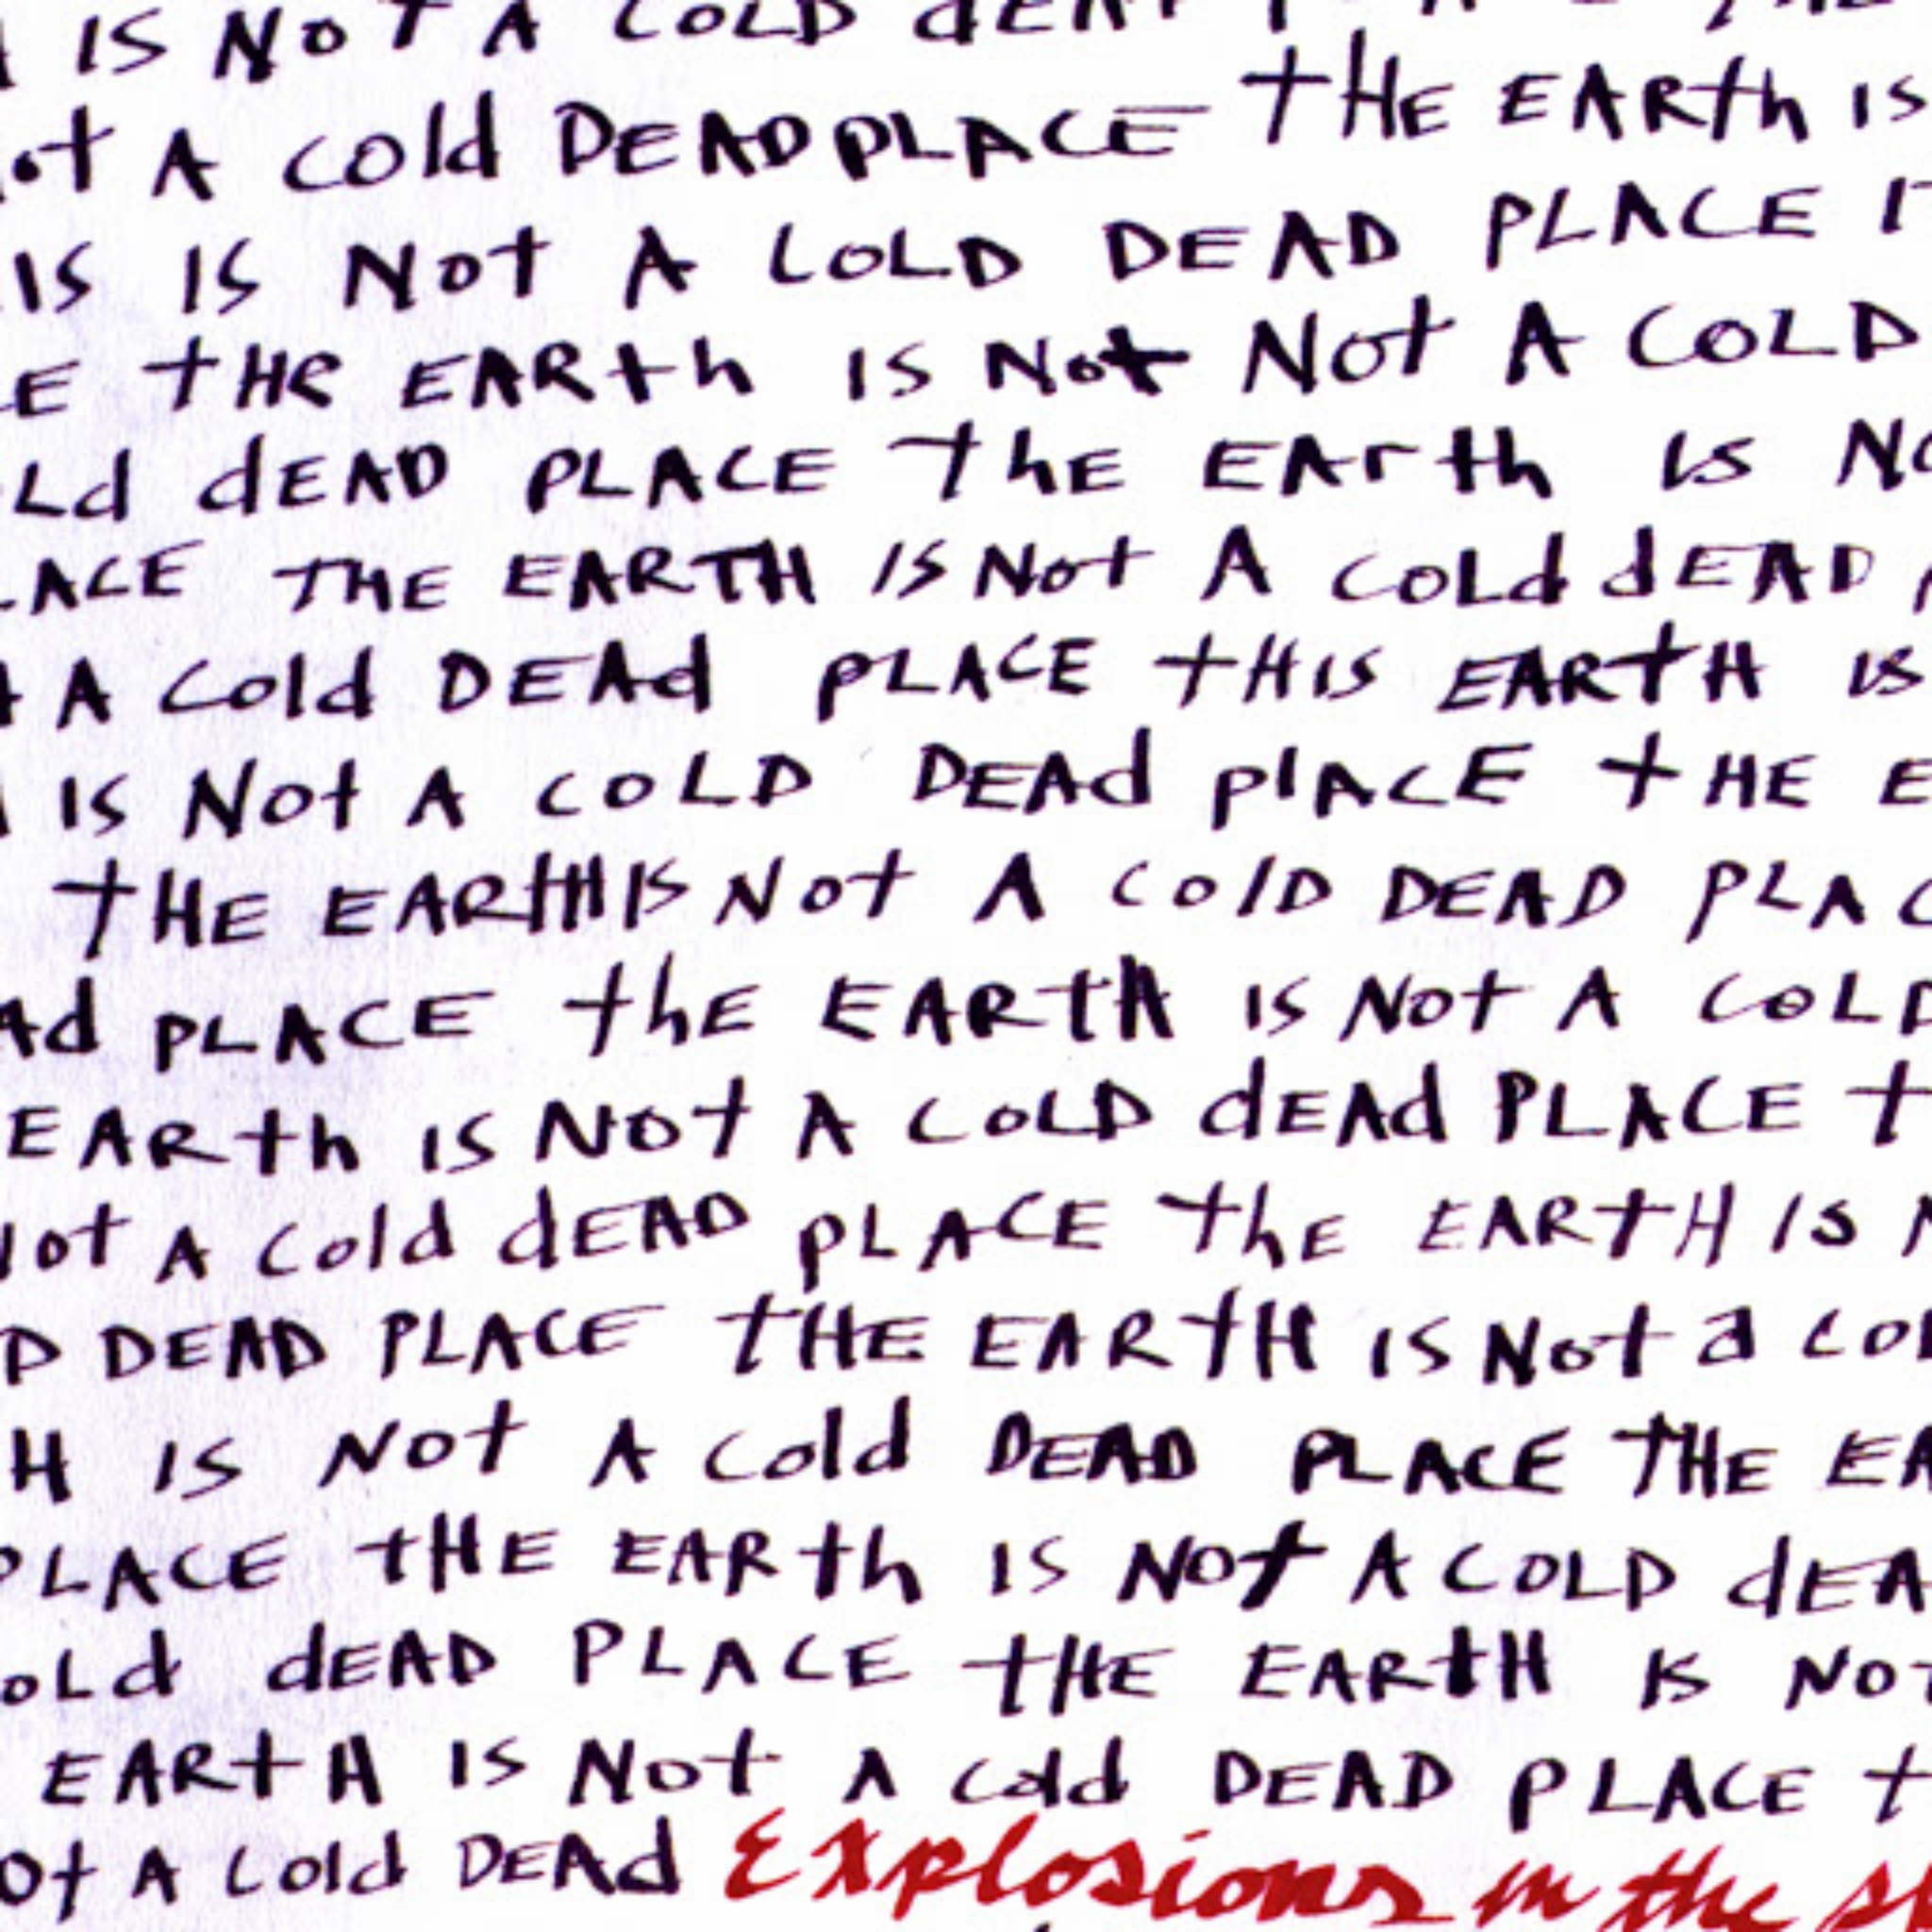 IS NOT A COLD dEAT
ot A cold DEAD PLACE tHE EARth IS
IS IS Not A COLD DEAD PLACE
E tHE EARth IS Not Not A COLD
Ld dEAD PLACE thE EArth IS NO
LACE THE EARTH IS Not A COLd dEAD
A Cold DEAd PLACE tHIS EARtH IS
IS Not A COLD DEAd PlACE tHE E
tHE EARtH IS Not A COlD DEAD PLAC
Ad PLACE thE EARtH IS Not A COLD
EARth IS NOt A COLD dEAd PLACE t
Not A Cold dEAD PLACE thE EARtH IS N
D DEAD PLACE tHE EARtH IS Not a COL
H IS NOt A Cold DEAD PLACE THE EA
PLACE tHE EARth IS NOt A COLD dEA
oLd dEAD PLACE tHE EARtH IS NOT
EARtH IS Not A Cold DEAD PLACE t
Ot A Cold DEAd Explosions in the s